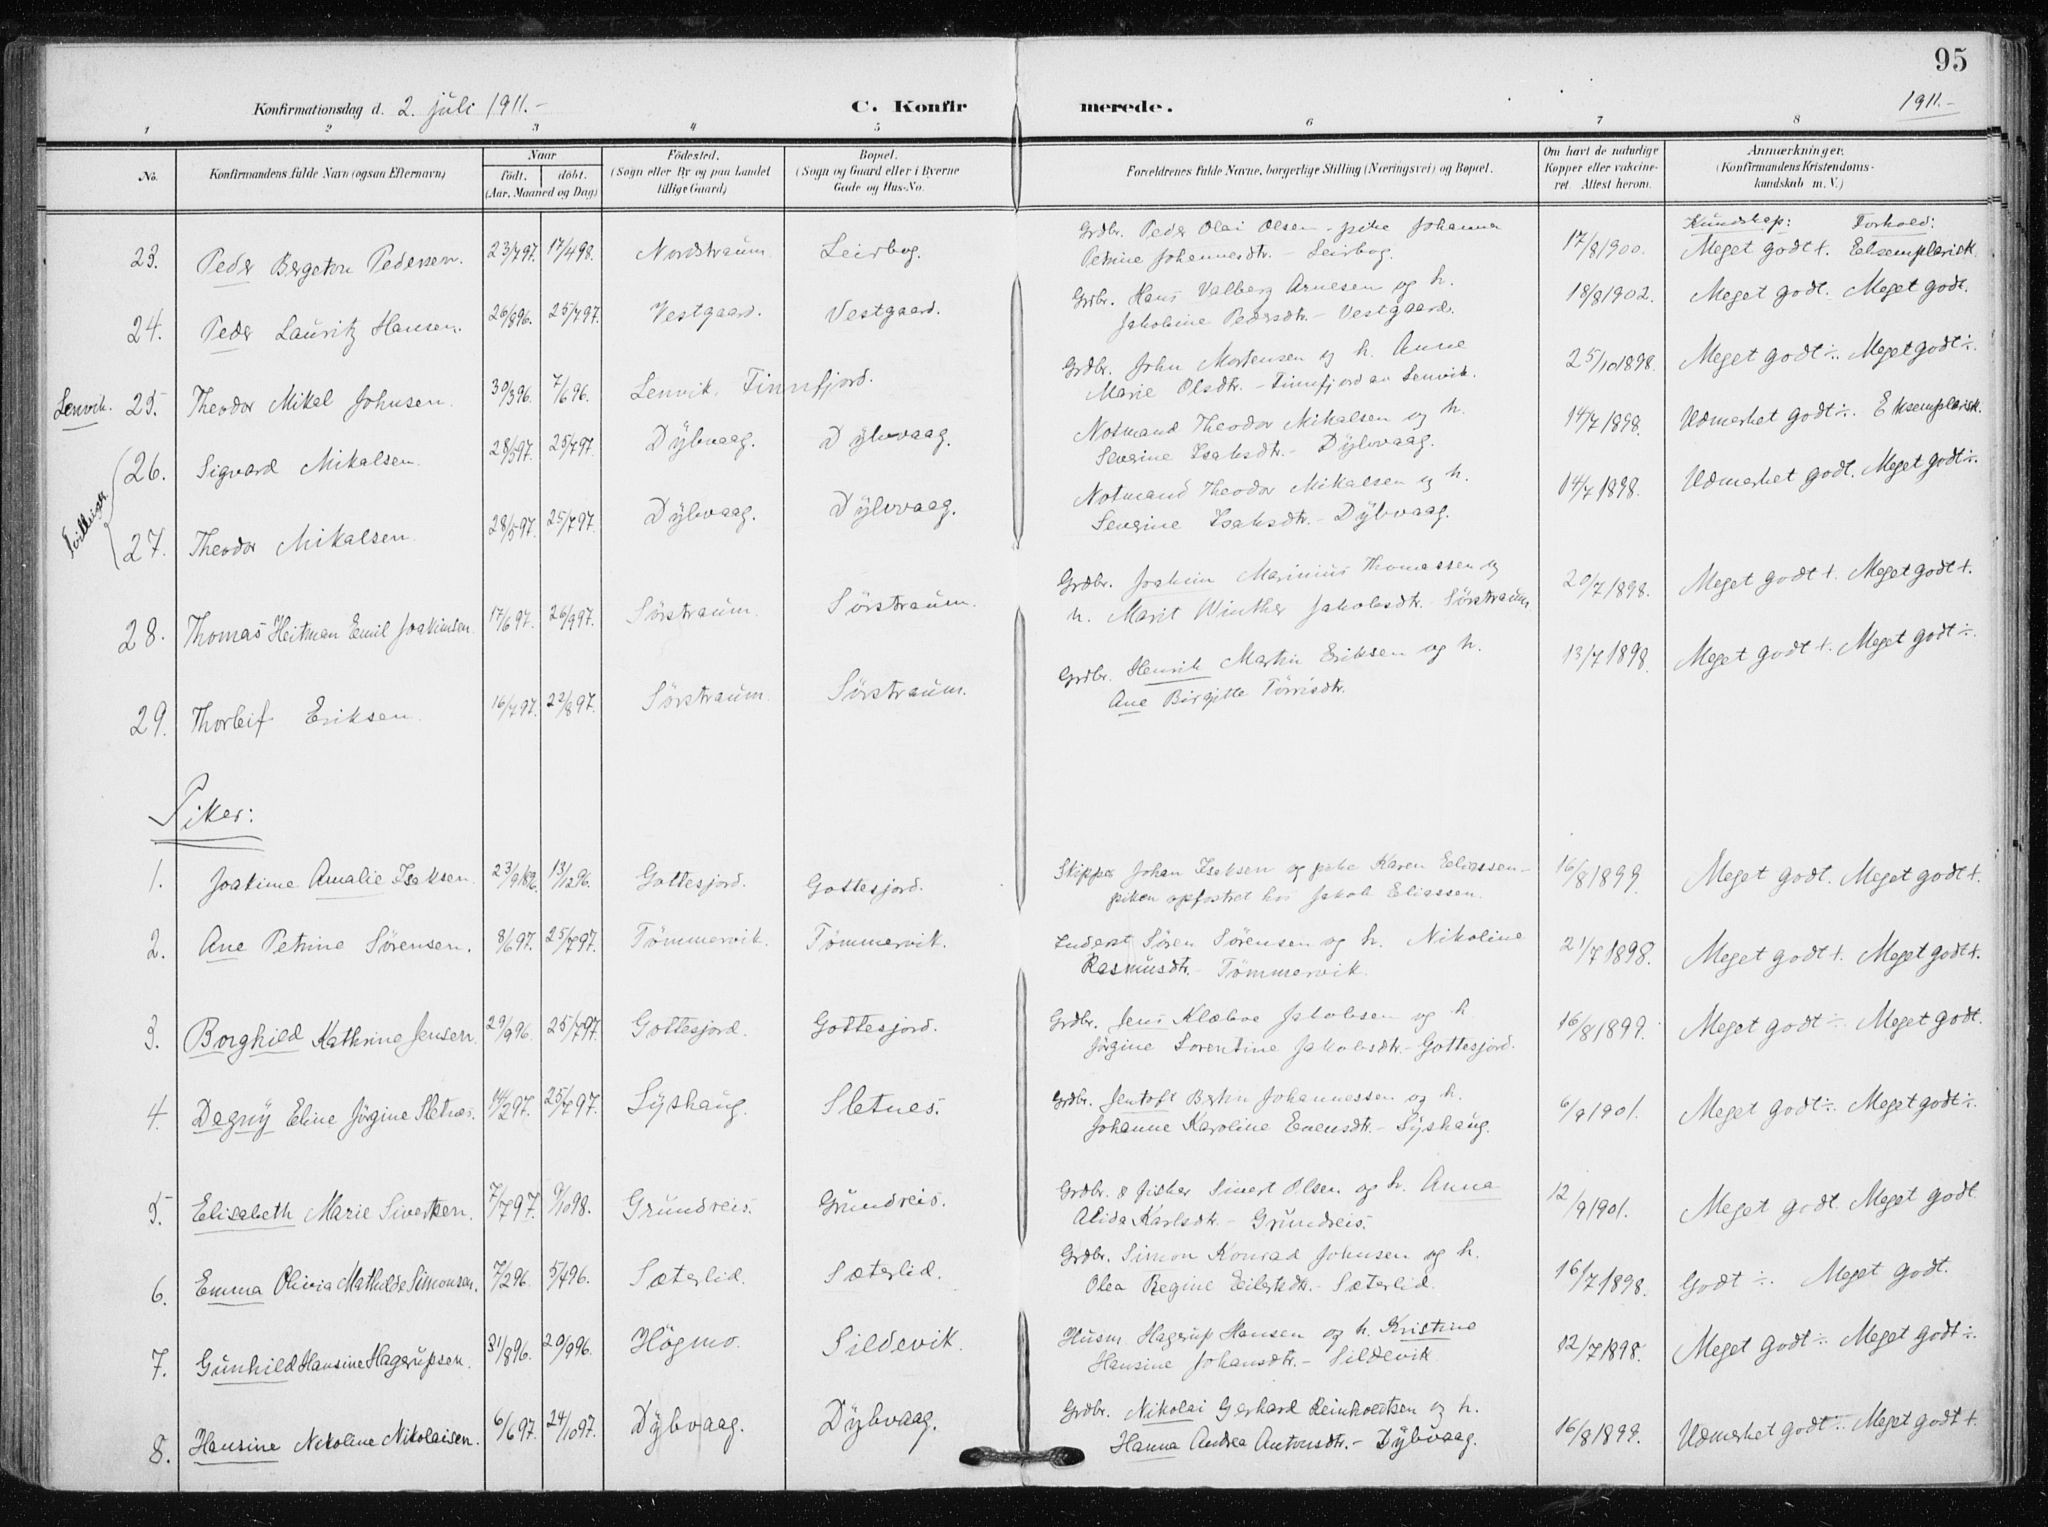 95
Konfirmationsdag d. 2. juli 1911.-
C. Konfirmerede.
1911.-
1 2 3 4 5 6 7 8
No. Konfirmandens fulde Navn (ogsaa Efternavn) Naar födt. döbt. (Aar, Maaned og Dag) Födested. (Sogn eller By og paa Landet tillige Gaard) Bopæl. (Sogn og Gaard eller i Byerne Gade og Hus-No. Forældrenes fulde Navne, borgerlige Stilling (Næringsvei) og Bopæl. Om havt de naturlige Kopper eller vakcineret. Attest herom. Anmærkninger. (Konfirmandens Kristendomskundskab m. V.)
Kundskap: Forhold:
23. Peder Bergeton Pedersen. 23/797. 17/498. Nordstraum. Leirbog. Grdbr. Peder Olai Olsen - pike Johanna
Petrine Johannesdtr. - Leirbog. 17/81900. Meget godt +. Eksemplarisk.
24. Peder Lauritz Hansen. 26/896. 25/797. Vestgaard. Vestgaard. Grdbr. Hans Valberg Arnesen og h.
Jakobine Pedersdtr. - Vestgaard. 18/81902. Meget godt. Meget godt.
Lenvik. 25. Theodor Mikal Johnsen. 30/396. 7/696. Lenvik, Finnfjord. Grdbr. John Mortensen og h. Anne
Marie Olsdtr. - Finnfjord av Lenvik. 25/101898. Meget godt ÷. Meget godt ÷.
Tvillinger. 26. Sigvard Mikalsen. 28/597. 25/797. Dÿbvaag. Dÿbvaag. Notmand Theodor Mikalsen og h.
Sevrine Isaksdtr. - Dÿbvaag. 14/71898. Udmerket godt ÷. Eksemplarisk.
27. Theodor Mikalsen. 28/597. 25/797. Dÿbvaag. Dÿbvaag. Notmand Theodor Mikalsen og h.
Sevrine Isaksdtr. - Dÿbvaag. 14/71898. Udmerket godt. Meget godt ÷.
28. Thomas Heitman Emil Joakimsen 17/697. 26/997. Sörstraum. Sörstraum. Grdbr. Joakim Marinius Thomassen og
h. Marit Winther Jakobsdtr. - Sörstraum. 20/71898. Meget godt +. Meget godt +.
29. Thorleif Eriksen. 16/797. 22/897. Sörstraum. Sörstraum. Grdbr. Henrik Martin Eriksen og h.
Ane Birgitte Törrisdtr. 13/71898. Meget godt +. Meget godt ÷.
Piker:
1. Joakime Amalie Isaksen. 23/9896. 13/1296. Gottesjord. Gottesjord. Skipper Johan Isaksen og pike Karen Eliassen -
piken opfostret hos Jakob Eliassen. 16/81899. Meget godt. Meget godt +.
2. Ane Petrine Sörensen. 8/697. 25/797. Tömmervik. Tömmervik. Inderst Sören Sörensen og h. Nikoline
Rasmusdtr. - Tömmervik. 21/71898. Meget godt +. Meget godt +.
3. Borghild Kathrine Jensen. 29/996. 25/797. Gottesjord. Gottesjord. Grdbr. Jens Klæboe Jakobsen og h.
Jörgine Lorentine Jakobsdtr. - Gottesjord. 16/81899. Meget godt ÷. Meget godt.
4. Dagnÿ Eline Jörgine Sletnes. 14/297. 25/797. Lÿshaug. Sletnes. Grdbr. Jentoft Bertin Johannessen og h.
Johanne Karoline Evensdtr. - Lÿshaug. 6/91901. Meget godt ÷. Meget godt ÷.
5. Elisabeth Marie Sivertsen. 7/797. 9/1098. Grundreis. Grundreis. Grdbr. & fisker Sivert Olsen og h. Anna
Alida Karlsdtr. - Grundreis. 12/91901. Meget godt. Meget godt.
6. Emma Olivia Mathilde Simonsen. 7/296. 5/496. Sæterlid. Sæterlid. Grdbr. Simon Konrad Johnsen og h.
Olea Regine Eilertsdtr. - Sæterlid. 16/71898. Godt ÷. Meget godt.
7. Gunhild Hansine Hagerupsen. 31/896. 20/996. Högmo. Sildevik. Husm. Hagerup Hansen og h. Kristine
Hansine Johansdtr. - Sildevik. 12/71898. Meget godt ÷. Meget godt ÷.
8. Hansine Nikoline Nikolaisen. 6/697. 24/1097. Dÿbvaag. Dÿbvaag. Grdbr. Nikolai Gerhard Reinhoertsen og h.
Hanna Andrea Antonsdtr. - Dÿbvaag. 16/81899. Udmerket godt ÷. Meget godt +.